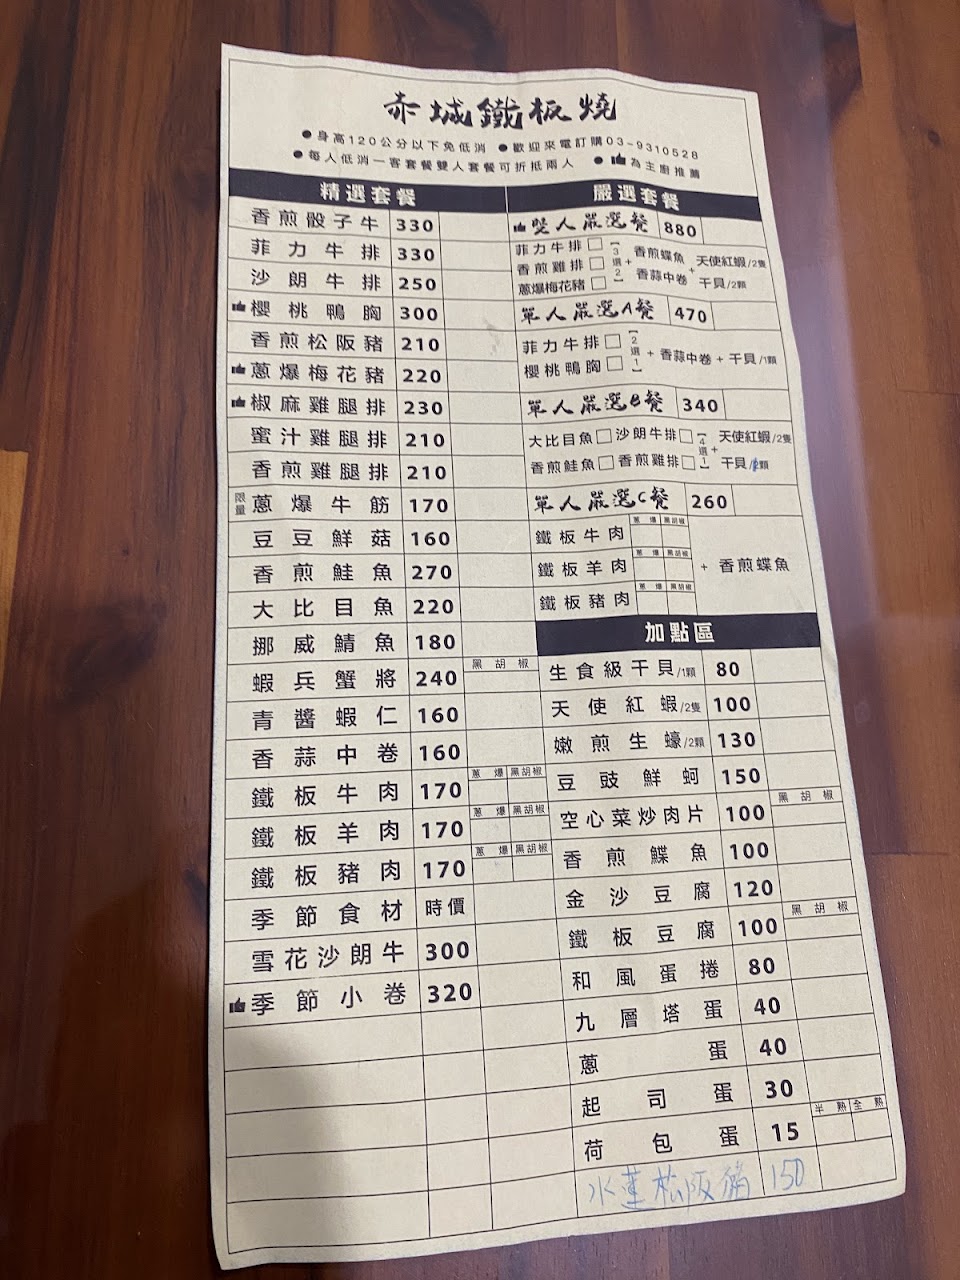 赤城鐵板燒
●身高120公分以下免低消 ●歡迎來電訂購03-9310528
●每人低消一客套餐雙人套餐可折抵兩人 ●為主廚推薦
精選套餐
香煎骰子牛 330
菲力牛排 330
沙朗牛排 250
櫻桃鴨胸 300
香煎松阪豬 210
蔥爆梅花豬 220
椒麻雞腿排 230
蜜汁雞腿排 210
香煎雞腿排 210
限量 蔥爆牛筋 170
豆豆鮮菇 160
香煎鮭魚 270
大比目魚 220
挪威鯖魚 180
蝦兵蟹將 240 黑胡椒
青醬蝦仁 160
香蒜中卷 160
鐵板牛肉 170 蔥爆 黑胡椒
鐵板羊肉 170 蔥爆 黑胡椒
鐵板豬肉 170 蔥爆 黑胡椒
季節食材 時價
雪花沙朗牛 300
季節小卷 320
嚴選套餐
雙人嚴選餐 880
菲力牛排□
香煎雞排□
蔥爆梅花豬□
【3選2】
+
香煎鰈魚
香蒜中卷
+
天使紅蝦/2隻
干貝/2顆
單人嚴選A餐 470
菲力牛排□
櫻桃鴨胸□
【2選1】
+ 香蒜中卷 + 干貝/1顆
單人嚴選B餐 340
大比目魚□沙朗牛排□
香煎鮭魚□香煎雞排□
【4選1】
+
天使紅蝦/2隻
干貝/顆
單人嚴選C餐 260
鐵板牛肉 蔥爆 黑胡椒
鐵板羊肉 蔥爆 黑胡椒
鐵板豬肉 蔥爆 黑胡椒
+ 香煎鰈魚
加點區
生食級干貝/1顆 80
天使紅蝦/2隻 100
嫩煎生蠔/2顆 130
豆豉鮮蚵 150
空心菜炒肉片 100 黑胡椒
香煎鰈魚 100
金沙豆腐 120
鐵板豆腐 100 黑胡椒
和風蛋捲 80
九層塔蛋 40
蔥蛋 40
起司蛋 30
荷包蛋 15 半熟 全熟
水蓮松阪豬 150